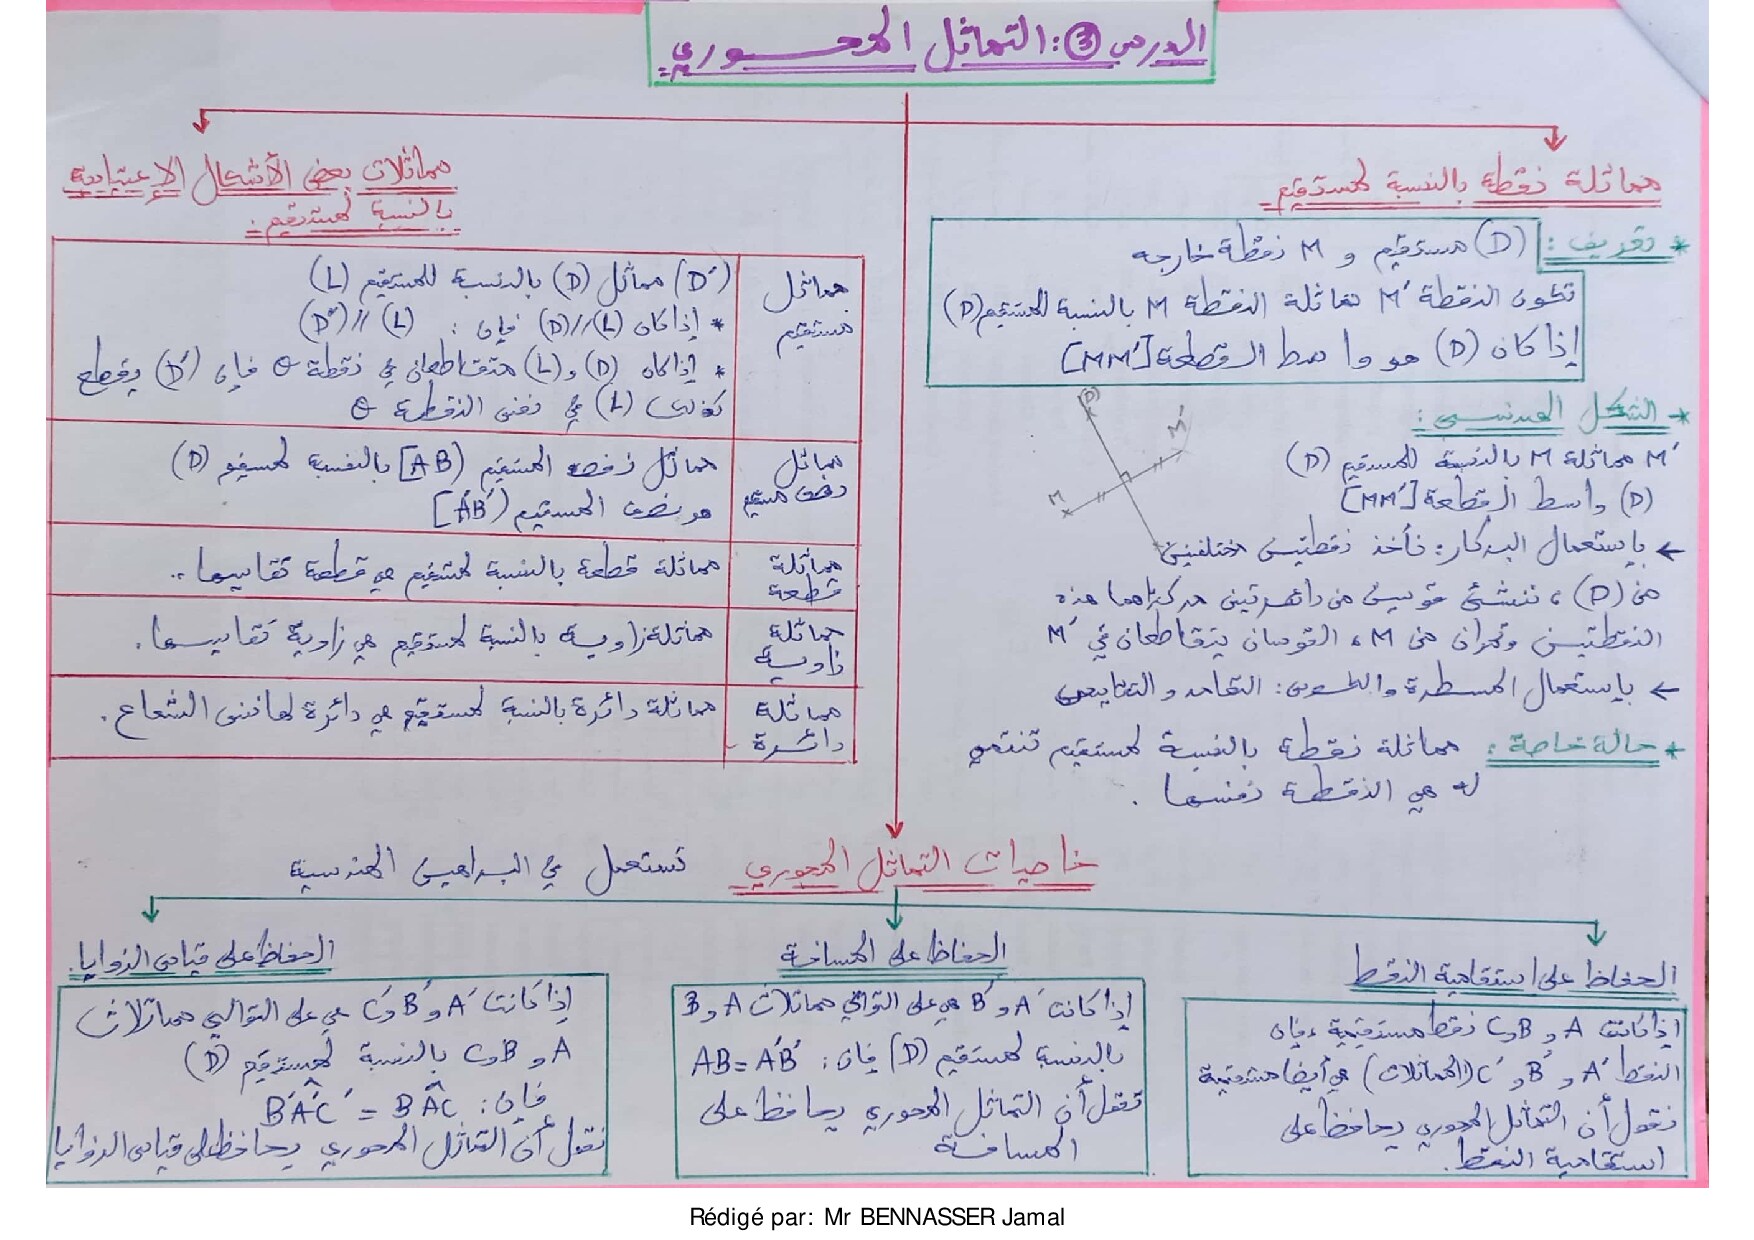 الدرس ③: التماثل المحوري
مماثلة نقطة بالنسبة لمستقيم
* تعريف: (D) مستقيم و M نقطة خارجه
تكون النقطة M' مماثلة النقطة M بالنسبة للمستقيم (D)
إذا كان (D) هو واسط القطعة [MM']
* الشكل الهندسي:
(D)
M'
M
M' مماثلة M بالنسبة للمستقيم (D)
(D) واسط القطعة [MM']
← باستعمال البركار: نأخذ نقطتين مختلفتين
من (D)، ننشئ قوسين من دائرتين مركزاهما هذه
النقطتين وتمران من M، القوسان يتقاطعان في M'
← بإستعمال المسطرة والكوس: التعامد والتقايس
* حالة خاصة: مماثلة نقطة بالنسبة لمستقيم تنتمي
له هي النقطة نفسها.
مماثلات بعض الأشكال الإعتيادية
بالنسبة لمستقيم:
مماثل
مستقيم
(D') مماثل (D) بالنسبة للمستقيم (L)
* إذا كان (L)//(D) فإن: (L)//(D')
* إذا كان (D) و (L) متقاطعان في نقطة θ فإن (D') يقطع
كذلك (L) في نفس النقطة θ
مماثل
نصف مستقيم
مماثل نصف المستقيم [AB) بالنسبة لمستقيم (D)
هو نصف المستقيم [A'B')
مماثلة
قطعة
مماثلة قطعة بالنسبة لمستقيم هي قطعة تقايسها..
مماثلة
زاوية
مماثلة زاوية بالنسبة لمستقيم هي زاوية تقايسها.
مماثلة
دائرة
مماثلة دائرة بالنسبة لمستقيم هي دائرة لها نفس الشعاع.
خاصيات التماثل المحوري تستعمل في البراهين الهندسية
الحفاظ على استقامية النقط
إذا كانت A و B و C نقط مستقيمية، فإن
النقط A' و B' و C' (المماثلات) هي أيضا مستقيمية
نقول أن التماثل المحوري يحافظ على
استقامية النقط.
الحفاظ على المسافة
إذا كانت A' و B' هي على التوالي مماثلات A و B
بالنسبة لمستقيم (D) فإن: AB=A'B'
نقول أن التماثل المحوري يحافظ على
المسافة
الحفاظ على قياس الزوايا.
إذا كانت A' و B' و C' هي على التوالي مماثلات
A و B و C بالنسبة لمستقيم (D)
فإن: B'Â'C' = BÂC
نقول أن التماثل المحوري يحافظ على قياس الزوايا
Rédigé par: Mr BENNASSER Jamal